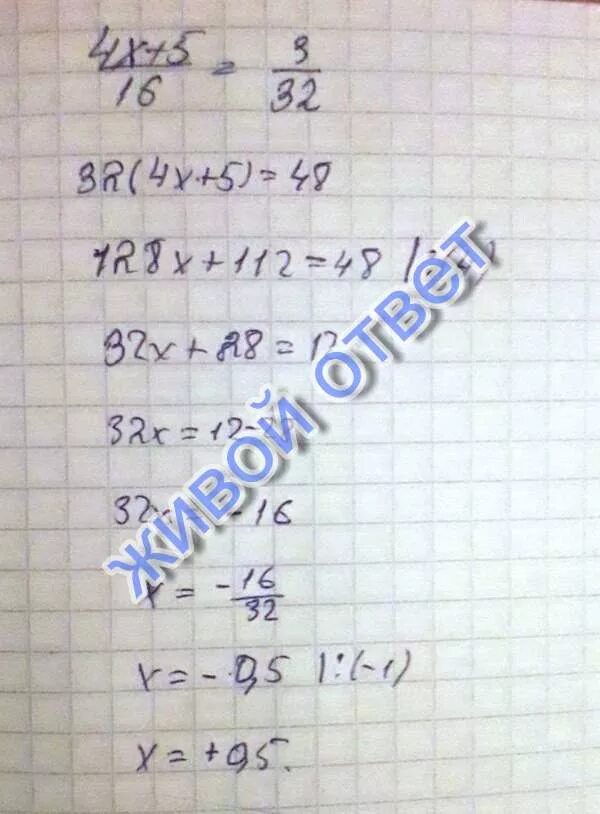 4x+5/16 = 3/32
32(4x+5)=48
128x+112=48 |:
32x+28=12
32x=12-
32x -16
x = -16/32
x = -0,5 |:(-1)
x = +0,5.
ЖИВОЙ ОТВЕТ